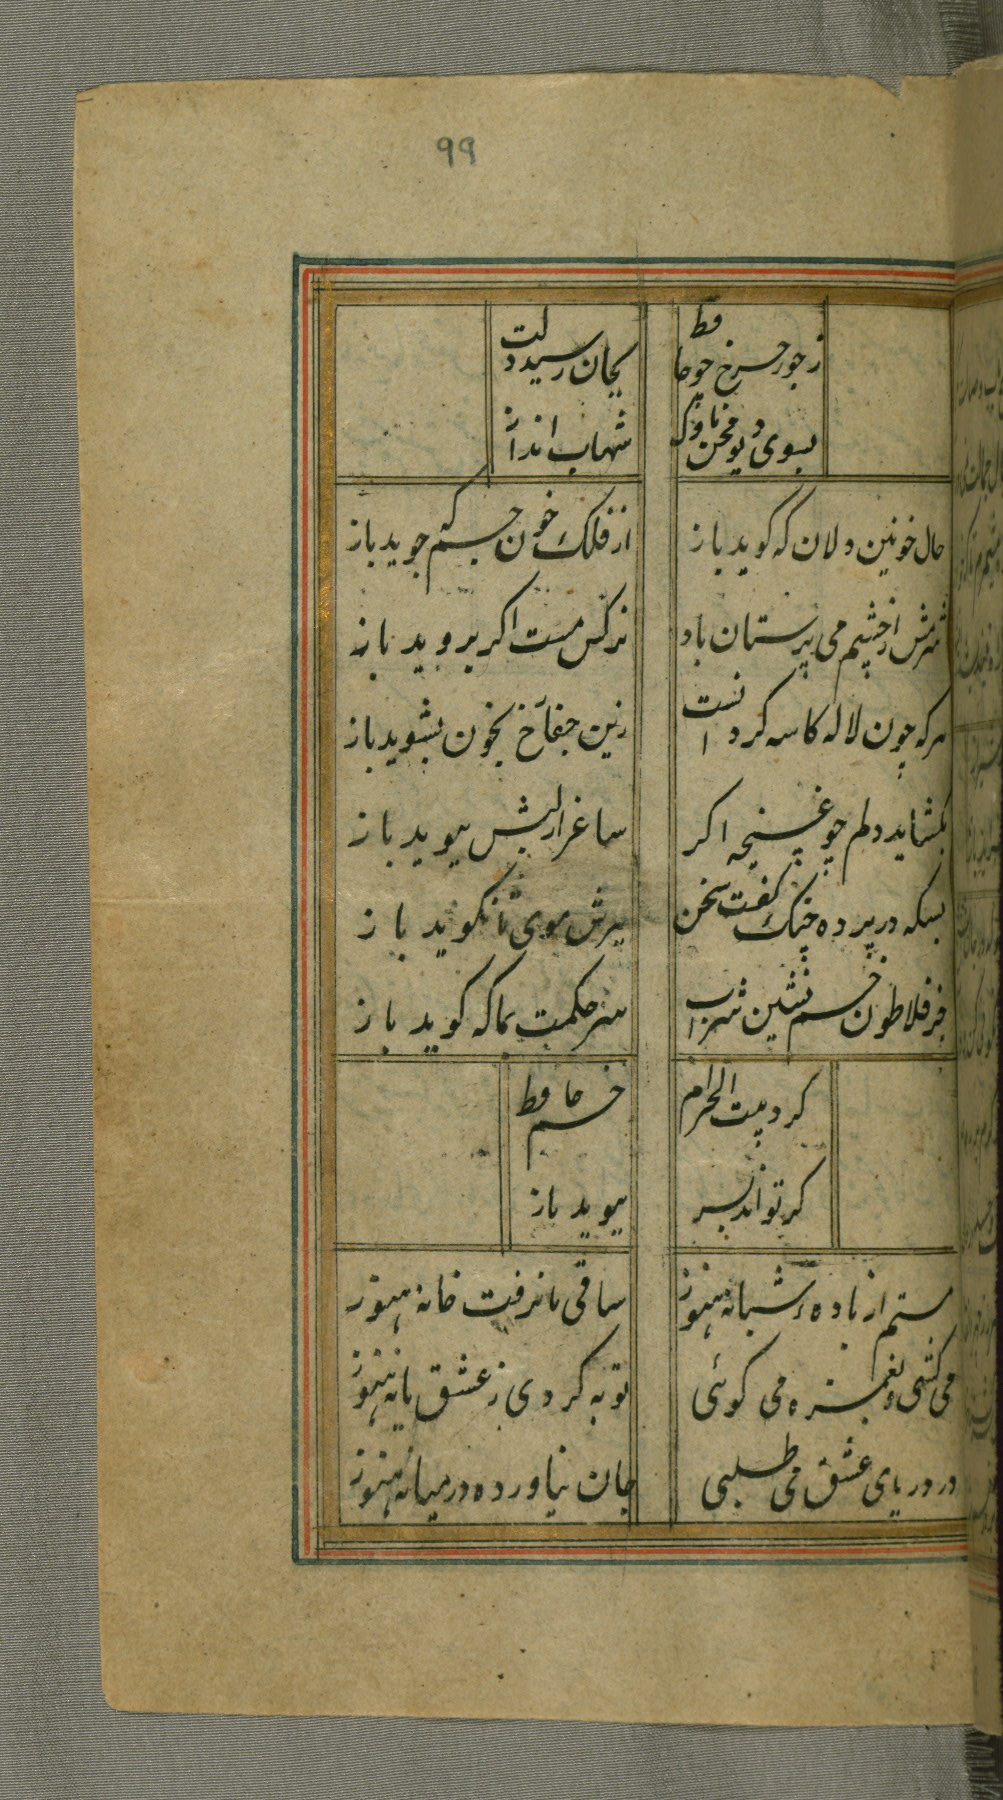 ۹۹
ز جور چرخ چو حافظ
بجان رسید دلت
بسوی دیو محن ناوک
شهاب انداز
حال خونین دلان که کوید باز
از فلک خون جم که جوید باز
شرمش از چشم می پرستان باد
نرکس مست اکر بروید باز
هرکه چون لاله کاسه کردانست
زین جفا رخ بخون بشوید باز
بکشاید دلم چو غنچه اکر
ساغر از لبش بیوید باز
بسکه در پرده چنک کفت سخن
ببرش موی تا نکوید باز
جز فلاطون خم نشین شراب
سر حکمت بما که کوید باز
کرد بیت الحرام
خم حافظ
کر تواند بسر
بیوید باز
مستم از باده شبانه هنوز
ساقی ما نرفت خانه هنوز
می کشی و بغمزه می کوئی
توبه کردی ز عشق یا نه هنوز
در دریای عشق می طلبی
جان نیاورده در میانه هنوز